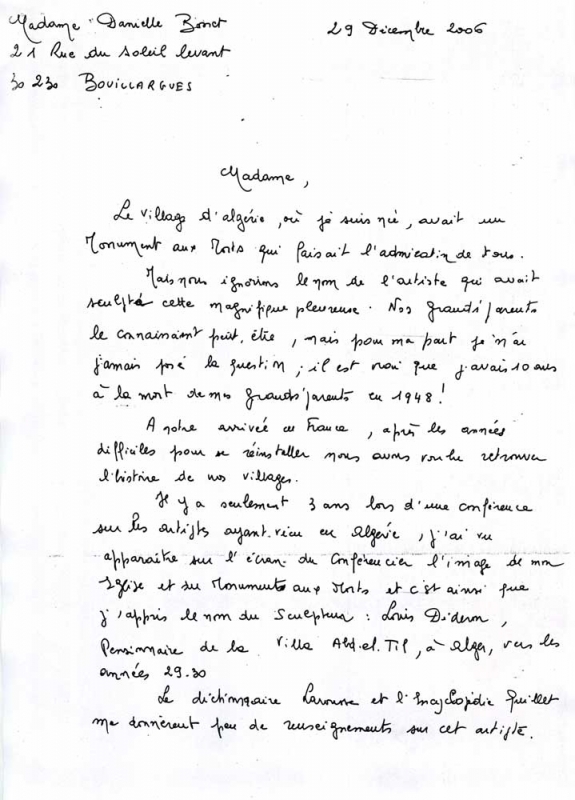 Madame Danielle Bonet
29 Décembre 2006
21 Rue du soleil levant
30 230 BOUILLARGUES
Madame,
Le village d'algérie, où je suis né, avait un
Monument aux Morts qui faisait l'admiration de tous.
Mais nous ignorions le nom de l'artiste qui avait
sculpté cette magnifique pleureuse. Nos grands'parents
le connaissaient peut, être, mais pour ma part je n'ai
jamais posé la question ; il est vrai que j'avais 10 ans
à la mort de mes grands'parents en 1948!
A notre arrivée en France, après les années
difficiles pour se réinstaller nous avons voulu retrouver
l'histoire de nos villages.
Il y a seulement 3 ans lors d'une conférence
sur les artistes ayant vécu en Algérie, j'ai vu
apparaître sur l'écran du Conférencier l'image de mon
Eglise et du Monument aux Morts et c'est ainsi que
j'appris le nom du Sculpteur : Louis Dideron,
Pensionnaire de la Villa Abd.el.Tif, à Alger, vers les
années 29.30
Le dictionnaire Larousse et l'Encyclopédie Quillet
me donnèrent peu de renseignements sur cet artiste.